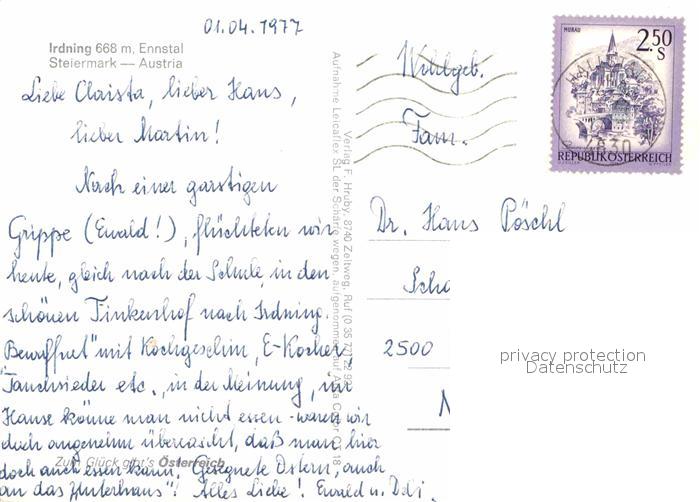 01.04.1977
Irdning 668 m, Ennstal
Steiermark — Austria
Liebe Christa, lieber Hans,
lieber Martin!
Nach einer garstigen
Grippe (Ewald!), flüchteten wir
heute, gleich nach der Schule, in den
schönen Finkenhof nach Irdning.
"Bewaffnet" mit Kochgeschirr, E-Kocher,
Tauchsieder etc., in der Meinung, im
Hause könne man nicht essen - waren wir
doch angenehm überrascht, daß man hier
doch auch essen kann. Gesegnete Ostern, auch
an das "Hinterhaus"! Alles Liebe! Ewald u.
Zum Glück gibt's Österreich
Verlag F. Hruby, 8740 Zeltweg, Ruf (0 35 77)
Aufnahme Leicaflex SL der Schärfe wegen aufgenommen auf Agfa
MURAU
2.50
S
REPUBLIK ÖSTERREICH
4830
Wohlgeb.
Fam.
Dr. Hans Pöschl
2500
privacy protection
Datenschutz